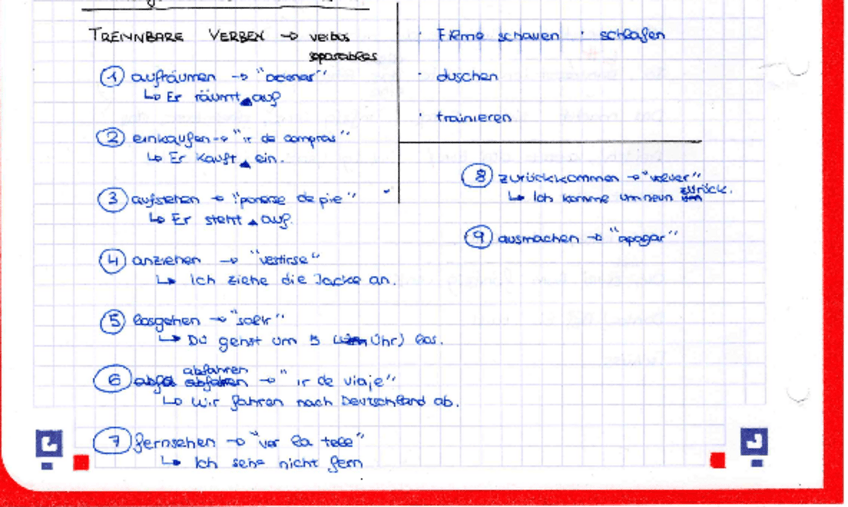 TRENNBARE VERBEN → verbos
separables
① aufräumen → "ordenar"
↳ Er räumt ▲ auf
② einkaufen → "ir de compras"
↳ Er kauft ▲ ein.
③ aufstehen → "ponerse de pie"
↳ Er steht ▲ auf.
④ anziehen → "vestirse"
↳ Ich ziehe die Jacke an.
⑤ losgehen → "salir"
↳ Du gehst um 5 (Uhr) los.
abfahren
⑥ → "ir de viaje"
↳ Wir fahren nach Deutschland ab.
⑦ fernsehen → "ver la tele"
↳ Ich sehe nicht fern
· Filme schauen · schlafen
· duschen
· trainieren
⑧ zurückkommen → "volver"
↳ Ich komme um neun zurück.
⑨ ausmachen → "apagar"